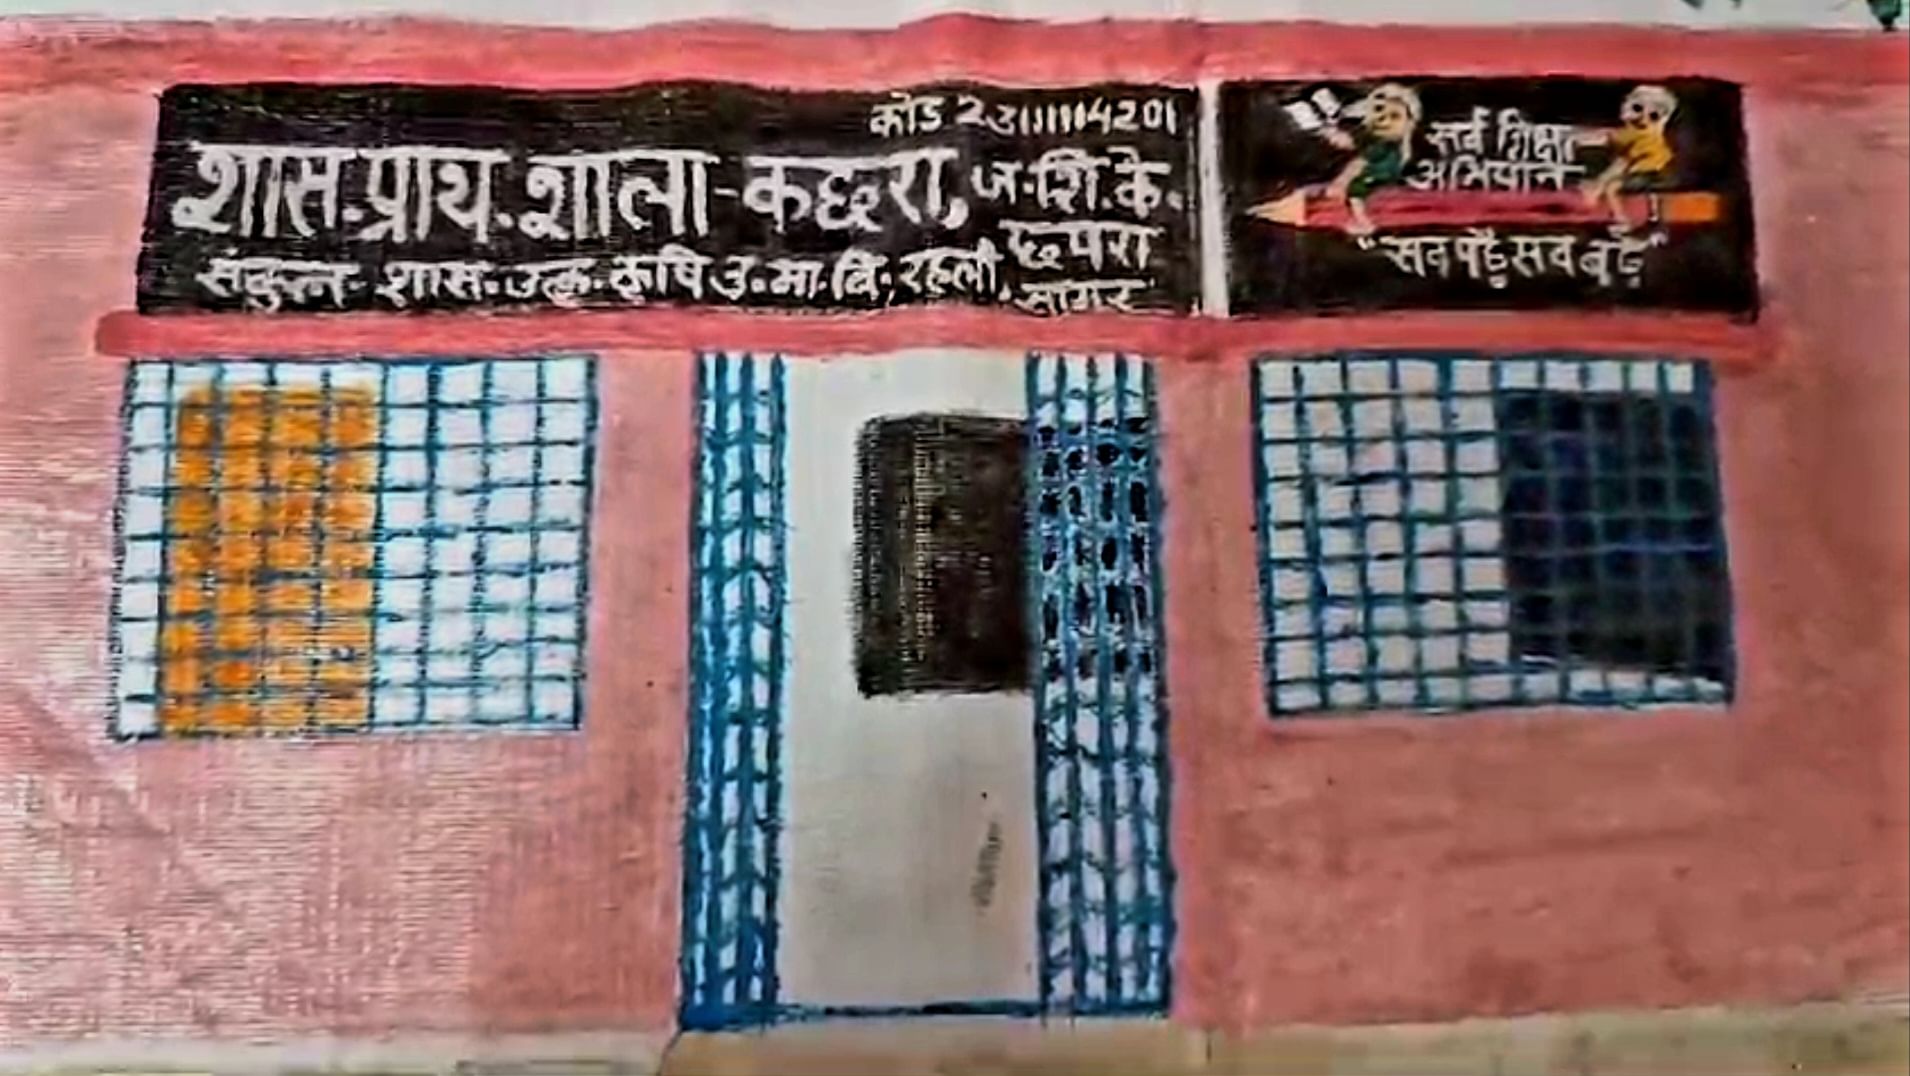 कोड 23111114201
शास. प्राथ. शाला - कछरा, ज. शि. के.
छपरा
संकुल - शास. उत्कृ. कृषि उ. मा. वि. रहली. सागर
सर्व शिक्षा
अभियान
"सब पढ़ें सब बढ़ें"